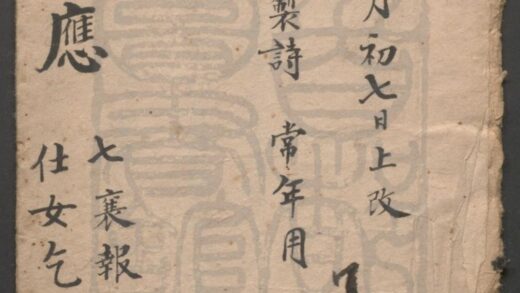 月初七日上改
製詩 常年用
應
七襄報
仕女乞